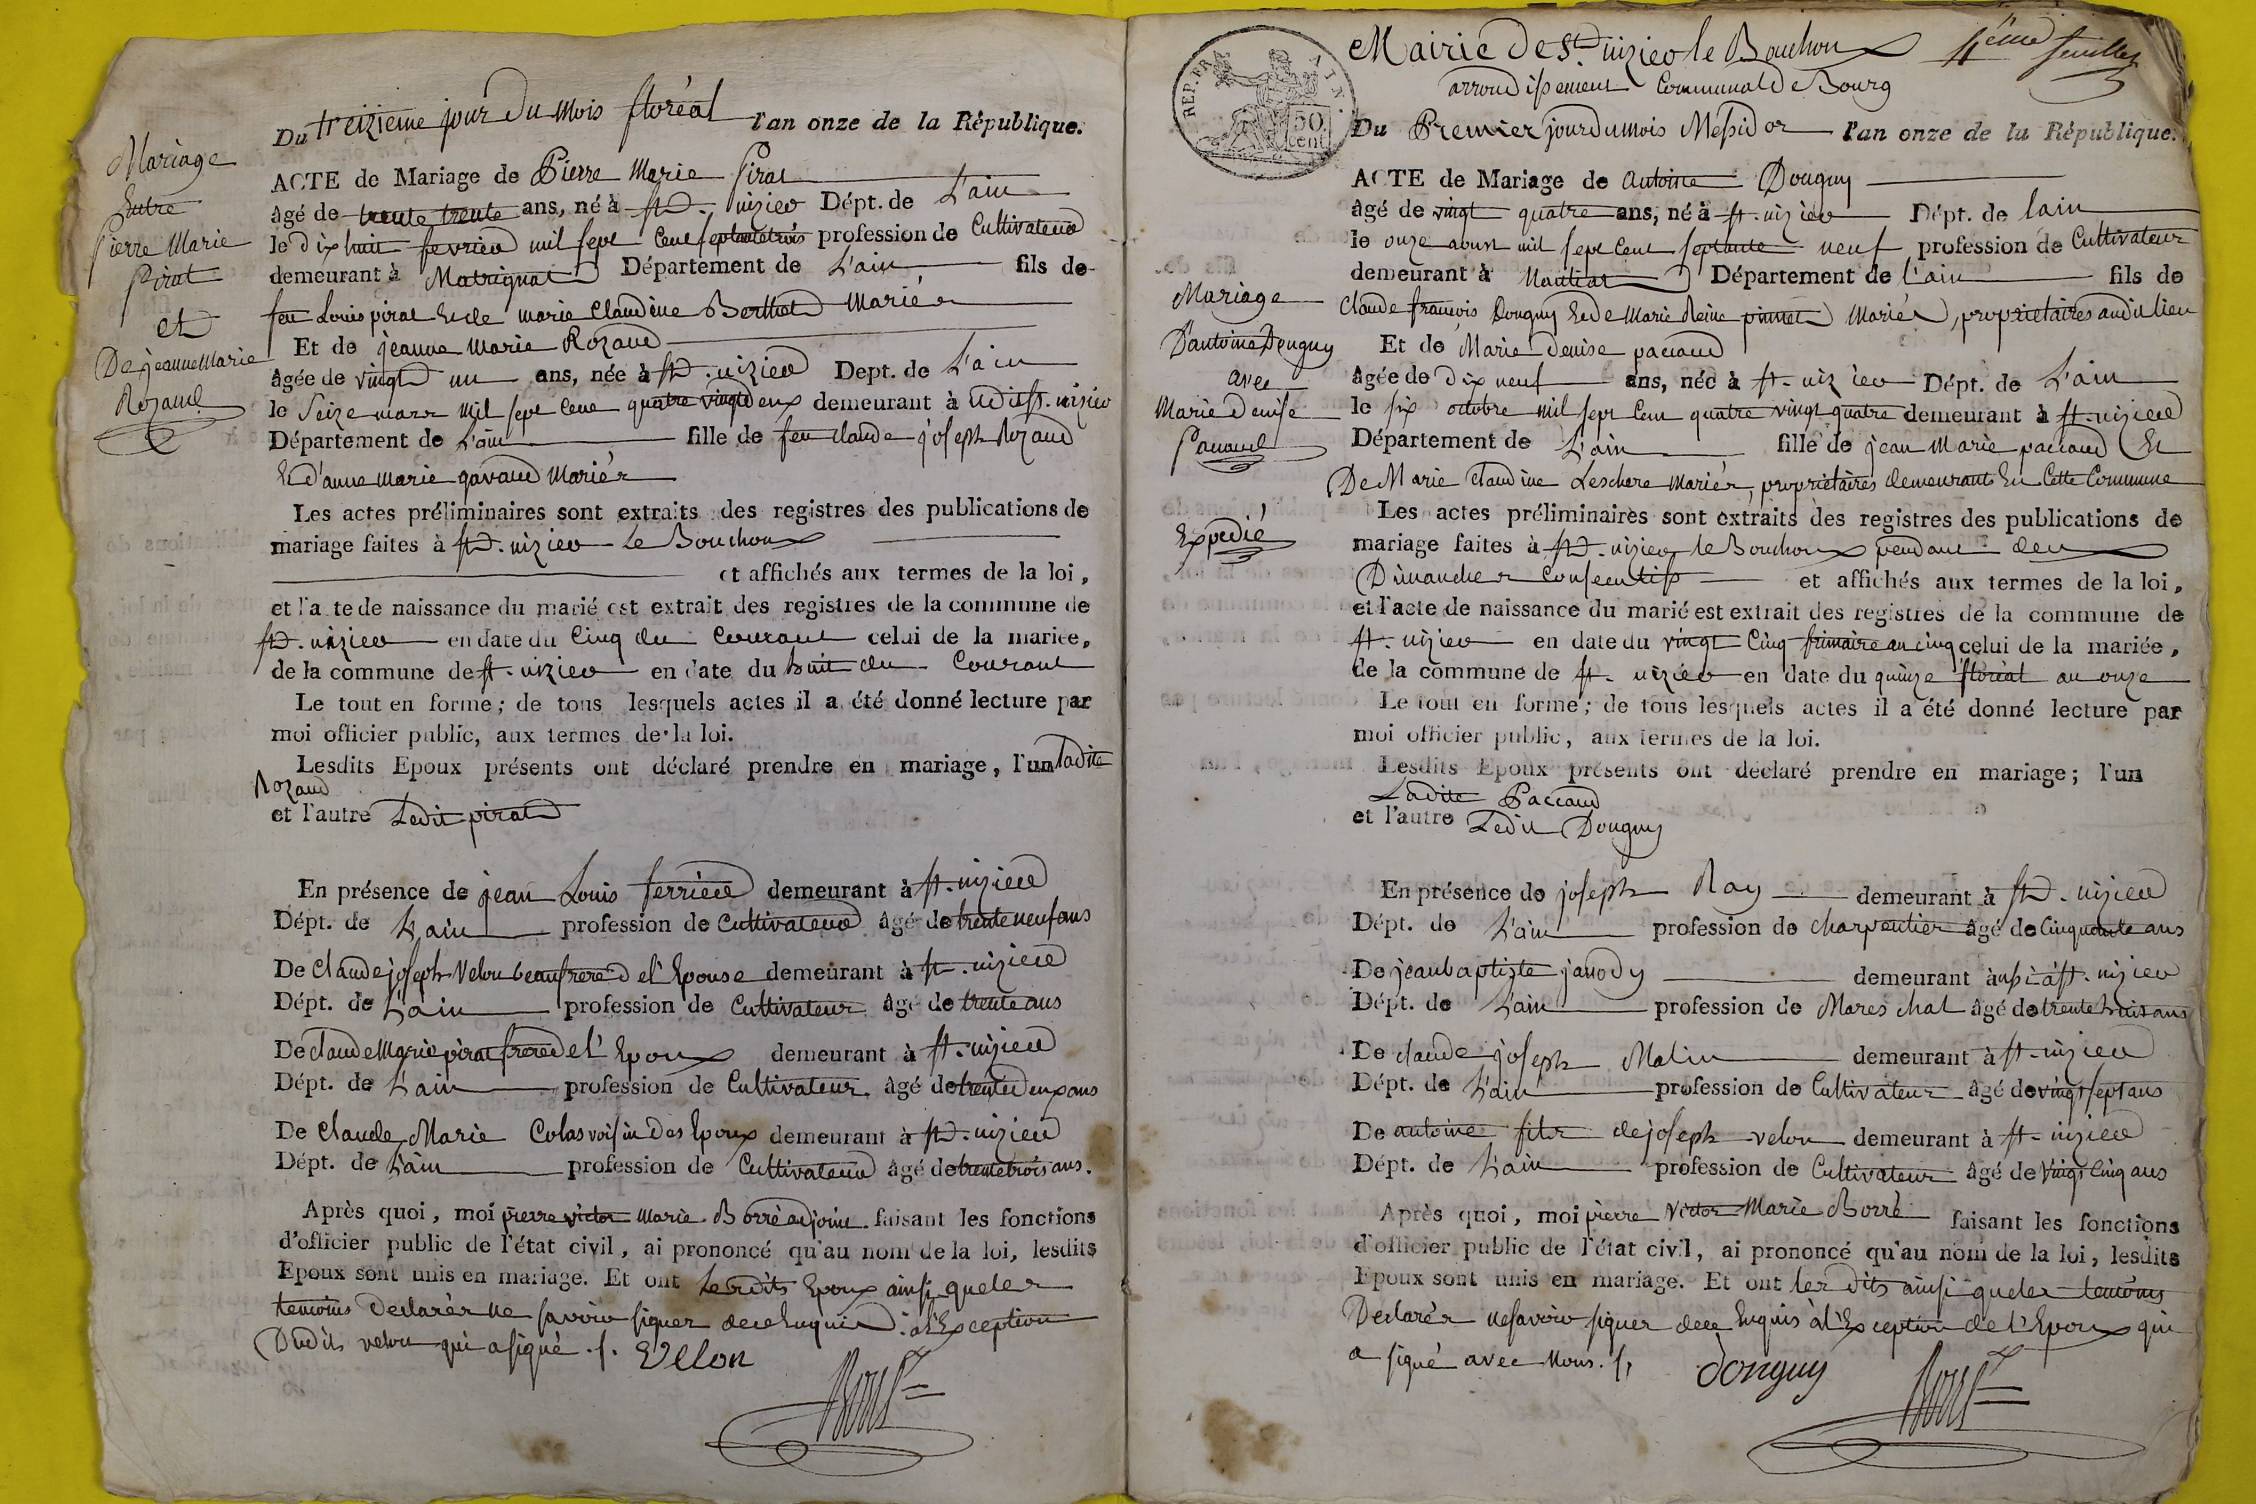 Du treizieme jour Du mois floréal l'an onze de la République.
Mariage
Entre
Pierre Marie
Pirat
et
De jeanne Marie
Rozand
ACTE de Mariage de Pierre Marie Pirat
âgé de trente trente ans, né à st. nizier Dépt. de L'ain
le dix huit fevrier mil sept Cent septante trois profession de Cultivateur
demeurant à Matrignat Département de L'ain fils de
feu Louis pirat Et de marie Claudine Berthet Mariés
Et de jeanne Marie Rozand
âgée de vingt un ans, née à st. nizier Dept. de L'ain
le Seize mars mil sept Cent quatre vingt deux demeurant à udit st. nizier
Département de L'ain fille de feu Claude joseph Rozand
Et d'anne marie gavand Mariés
Les actes préliminaires sont extraits des registres des publications de
mariage faites à st. nizier Le Bouchoux
et affichés aux termes de la loi,
et l'a te de naissance du marié est extrait des registres de la commune de
st. nizier en date du Cinq du Courant celui de la mariée,
de la commune de st. nizier en date du huit du Courant
Le tout en forme; de tous lesquels actes il a été donné lecture par
moi officier public, aux termes de la loi.
Lesdits Epoux présents ont déclaré prendre en mariage, l'un ladite
Rozand
et l'autre Ledit pirat
En présence de jean Louis ferrier demeurant à st. nizier
Dépt. de L'ain profession de Cultivateur âgé de trente neuf ans
De Claude joseph Velon beaufrere d el' Epouse demeurant à st. nizier
Dépt. de L'ain profession de Cultivateur âgé de trente ans
De Claude Marie pirat frere d el' Epoux demeurant à st. nizier
Dépt. de L'ain profession de Cultivateur âgé de trente deux ans
De Claude Marie Colas voisin Des Epoux demeurant à st. nizier
Dépt. de L'ain profession de Cultivateur âgé de trente trois ans.
Après quoi, moi pierre victor Marie Borré adjoint faisant les fonctions
d'officier public de l'état civil, ai prononcé qu'au nom de la loi, lesdits
Epoux sont unis en mariage. Et ont Lesdits Epoux ainsi que les
temoins Declarés ne savoir signer de ce Enquis à l'Exception
Dudit velon qui a signé .f. Velon
Mairie De St. nizier le Bouchoux 4eme feuillet
arrondissement Communal De Bourg
REP. FRA
50
cent.
Du Premier jour du mois Messidor l'an onze de la République.
Mariage
D'antoine Donguy
avec
Marie Denise
Paccaud
Expedié
ACTE de Mariage de Antoine Donguy
âgé de vingt quatre ans, né à st. nizier Dépt. de lain
le onze aoust mil sept Cent septante neuf profession de Cultivateur
demeurant à Mantiat Département de l'ain fils de
Claude francois Donguy Et de Marie Reine pinnet Mariés, proprietaires audit lieu
Et de Marie Denise paccaud
âgée de Dix neuf ans, née à st. nizier Dépt. de L'ain
le six octobre mil sept Cent quatre vingt quatre demeurant à st. nizier
Département de L'ain fille de jean Marie paccaud Et
De Marie Claudine Leschere Mariés, proprietaires demeurants En Cette Commune
Les actes préliminaires sont extraits des registres des publications de
mariage faites à st. nizier le Bouchoux pendant deux
Dimanches Consecutifs et affichés aux termes de la loi,
et l'acte de naissance du marié est extrait des registres de la commune de
st. nizier en date du vingt Cinq frimaire an cinq celui de la mariée,
de la commune de st. nizier en date du quinze floréal an onze
Le tout en forme; de tous lesquels actes il a été donné lecture par
moi officier public, aux termes de la loi.
Lesdits Epoux présents ont déclaré prendre en mariage; l'un
Ladite Paccaud
et l'autre Ledit Donguy
En présence de joseph Ray demeurant à st. nizier
Dépt. de L'ain profession de Charpentier âgé de Cinquante ans
De jean baptiste janody demeurant aussi à st. nizier
Dépt. de L'ain profession de Mareschal âgé de trente huit ans
De Claude joseph Malin demeurant à st. nizier
Dépt. de L'ain profession de Cultivateur âgé de vingt sept ans
De antoine fils de joseph velon demeurant à st. nizier
Dépt. de L'ain profession de Cultivateur âgé de Vingt Cinq ans
Après quoi, moi pierre Victor Marie Borré faisant les fonctions
d'officier public de l'état civil, ai prononcé qu'au nom de la loi, lesdits
Epoux sont unis en mariage. Et ont les dits ainsi que les temoins
Declarés ne savoir signer de ce Enquis à l'Exception de l'Epoux qui
a signé avec Nous .f. Donguy